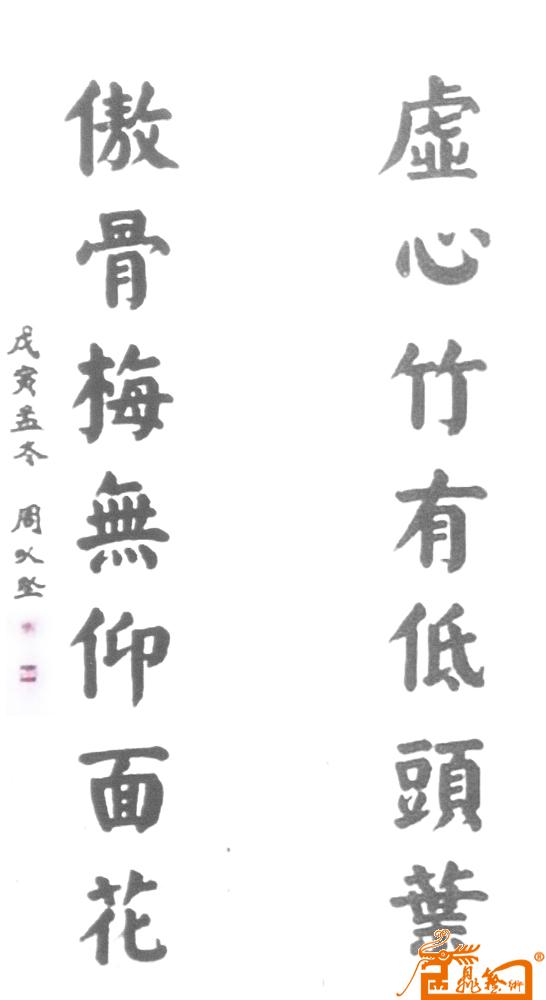 虛心竹有低頭葉
傲骨梅無仰面花
戊寅孟冬 周以